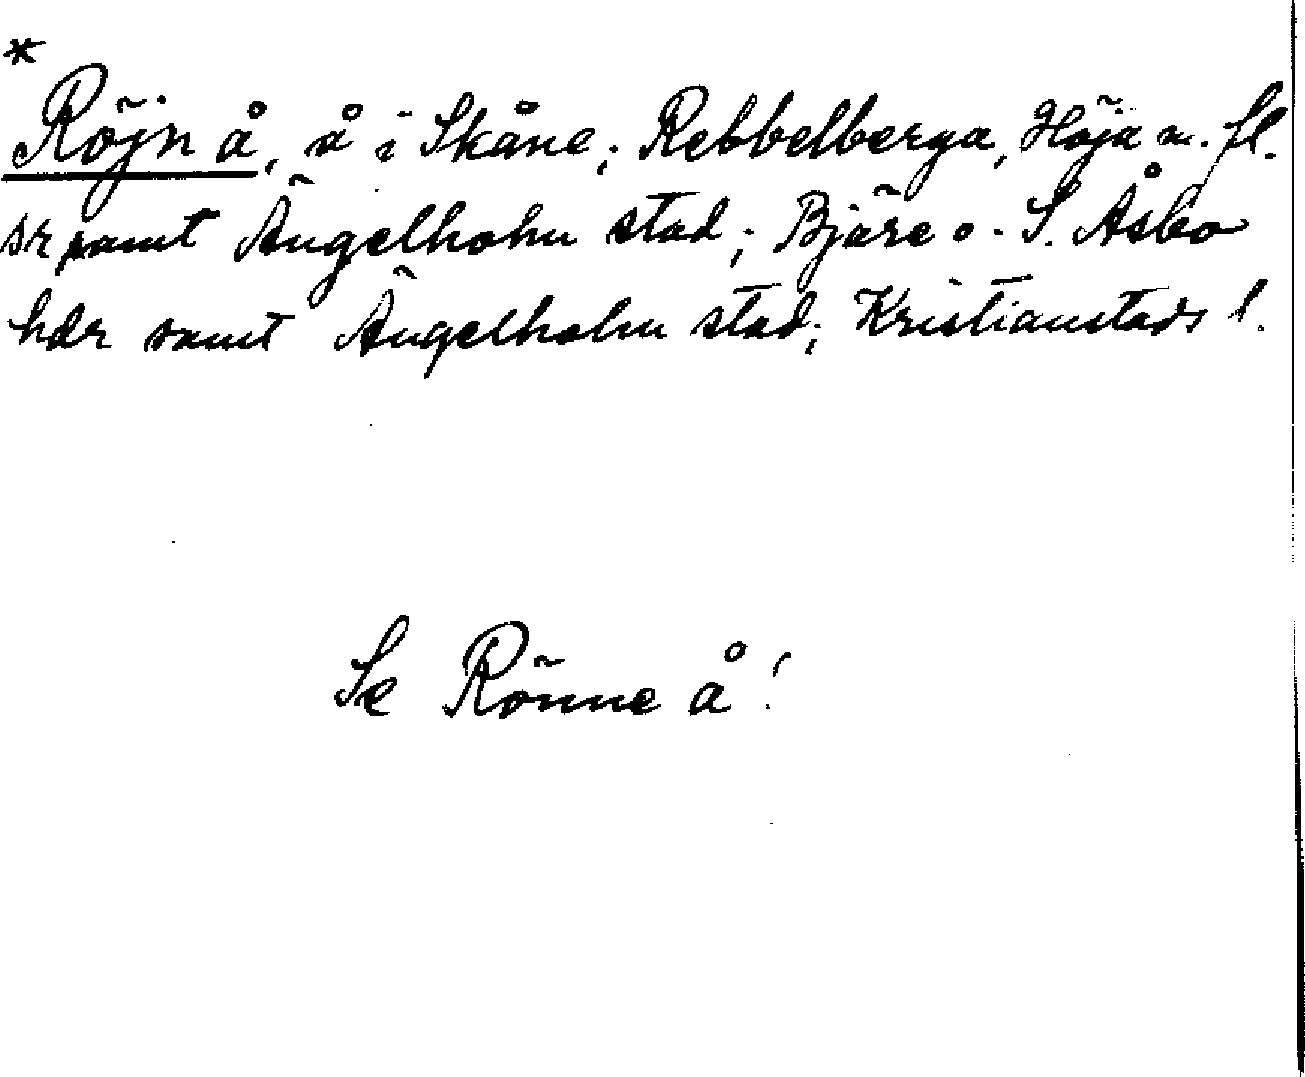 *
Röjn å, å i Skåne; Rebbelberga, Höja m. fl.
sr samt Ängelholm stad; Bjäre o. S. Åsbo
hdr samt Ängelholm stad; Kristianstads l.
Se Rönne å!